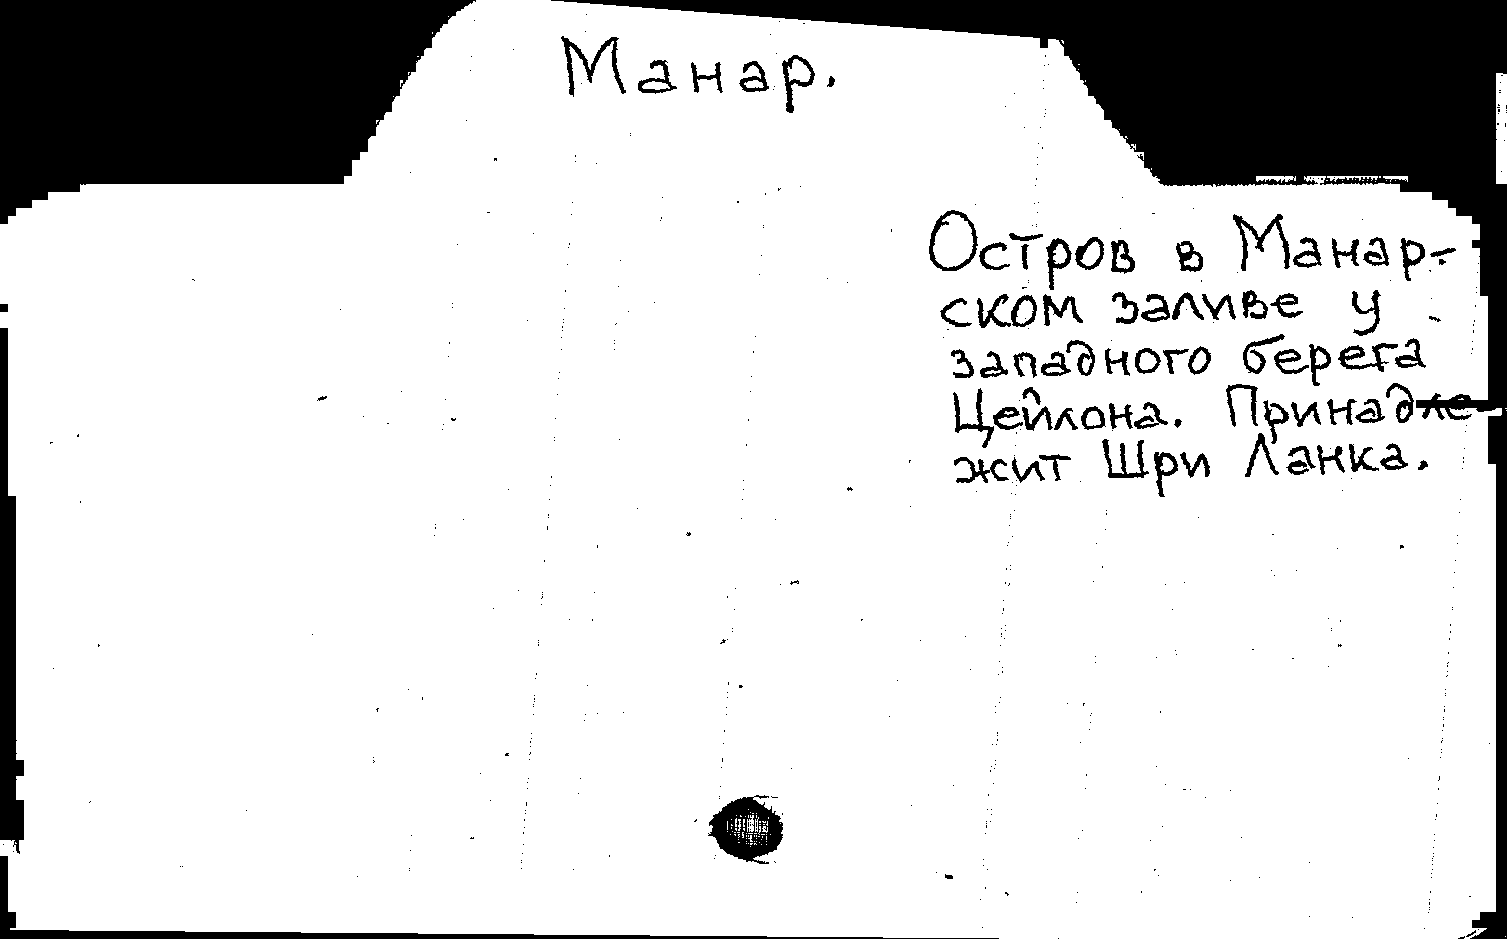 Манар.
Остров в Манар-
ском заливе у
западного берега
Цейлона. Принадле-
жит Шри Ланка.